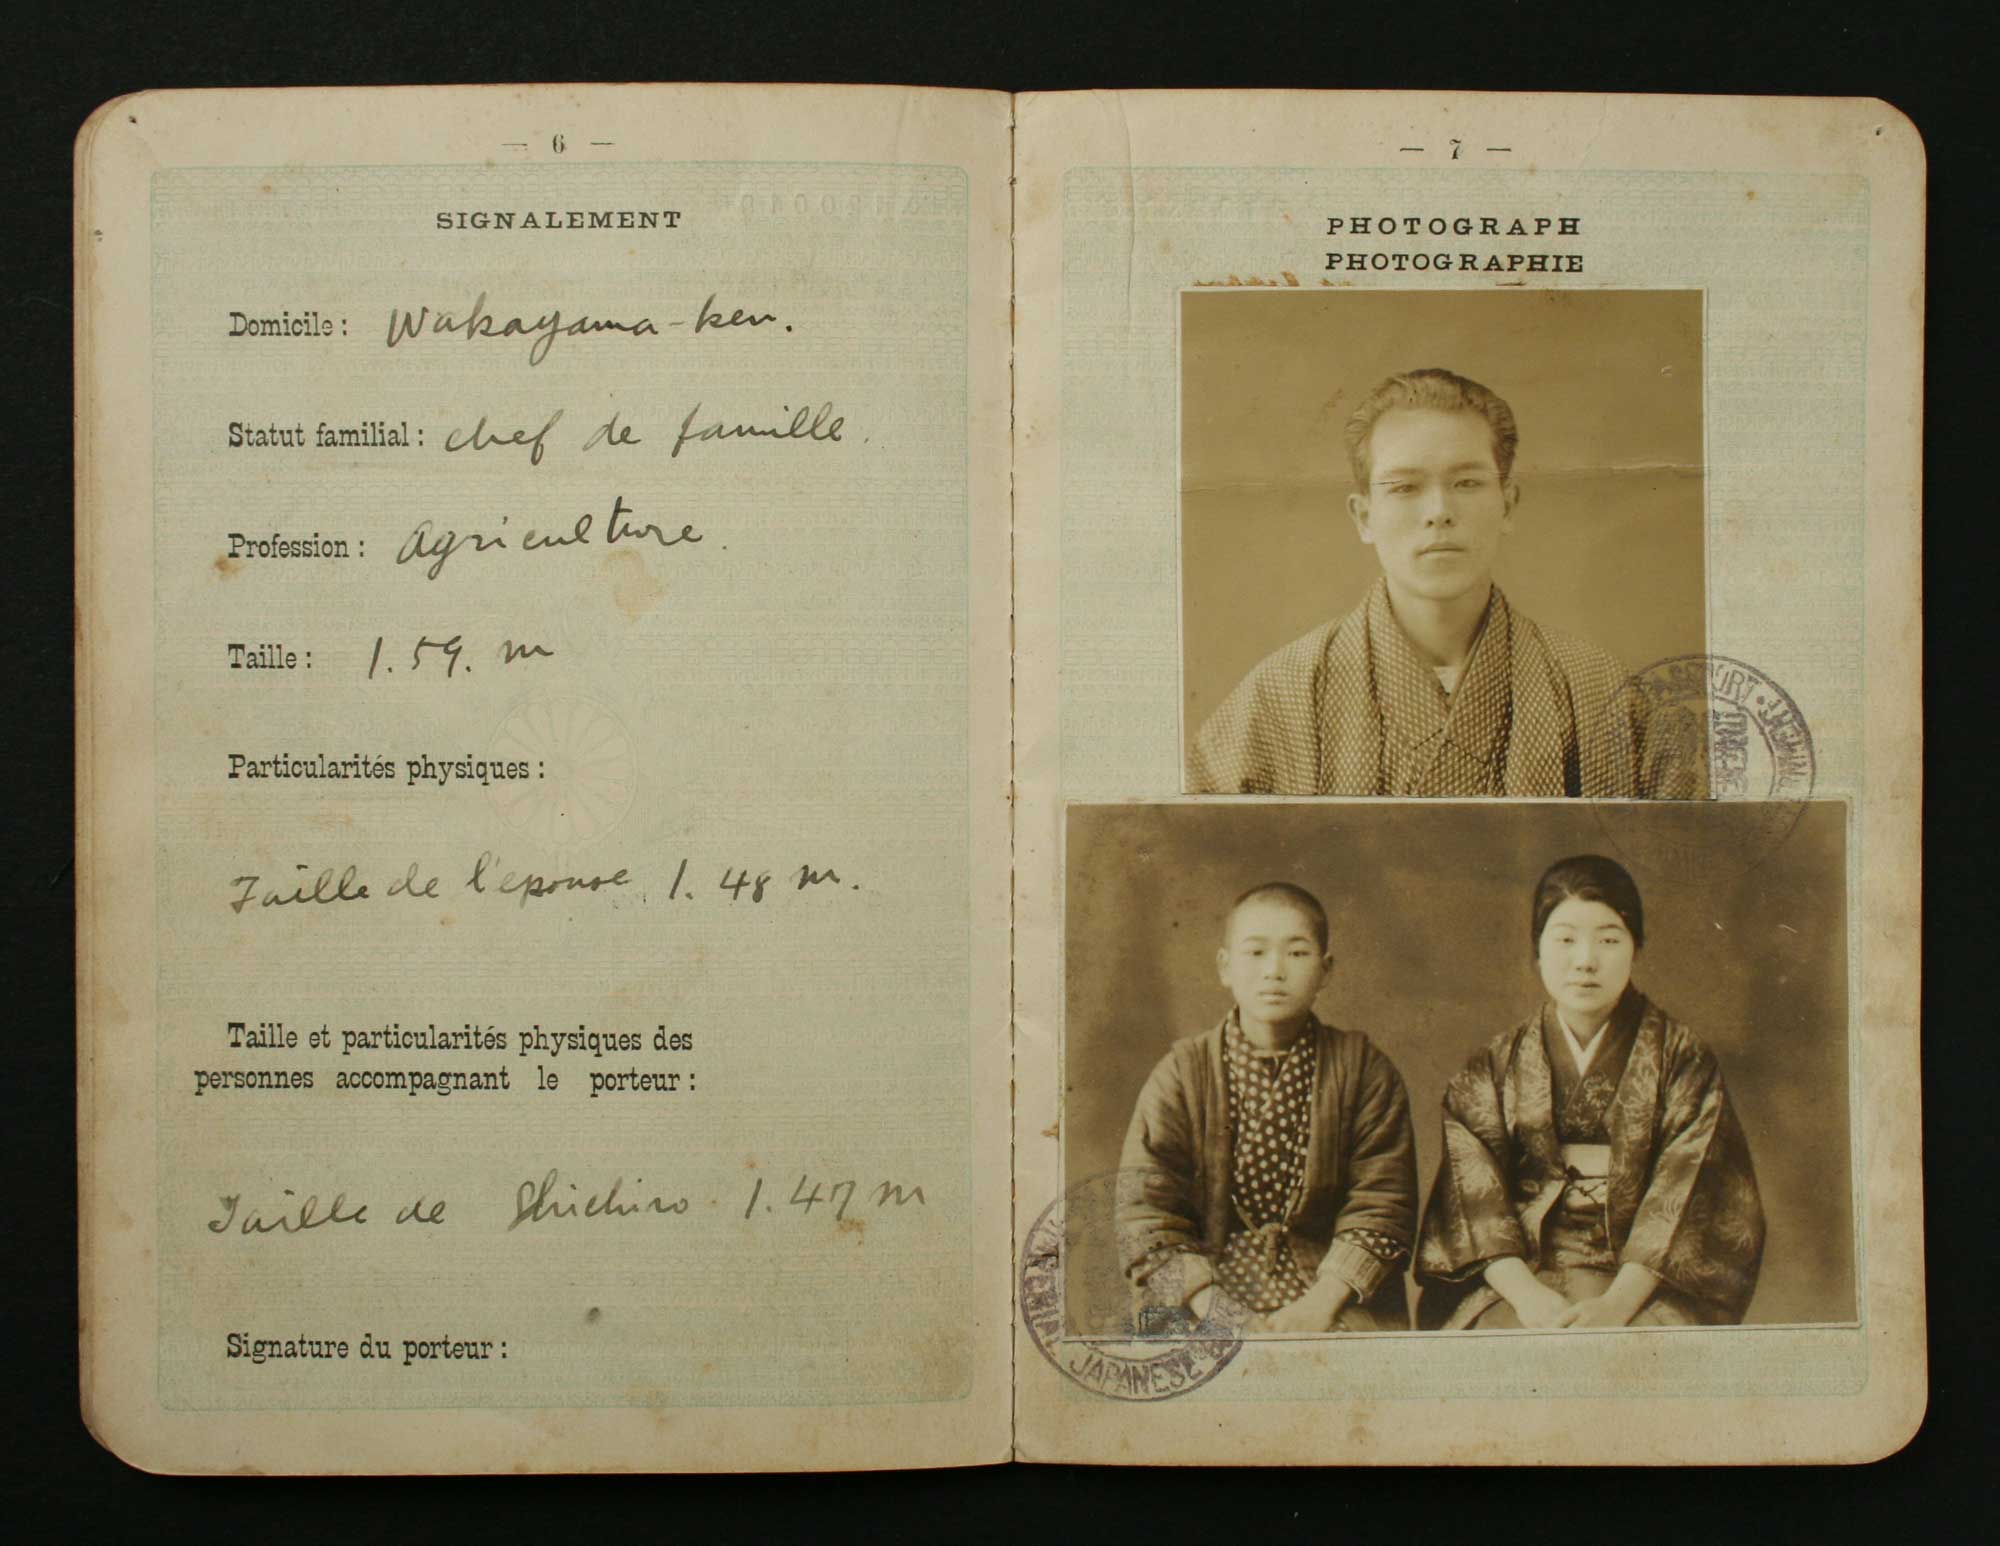 — 6 —
SIGNALEMENT
Domicile: Wakayama-ken.
Statut familial: chef de famille.
Profession: Agriculture.
Taille: 1.59. m
Particularités physiques:
Taille de l'epouse 1.48 m.
Taille et particularités physiques des
personnes accompagnant le porteur:
Taille de Shichiro 1.47 m
Signature du porteur:
— 7 —
PHOTOGRAPH
PHOTOGRAPHIE
JAPANESE